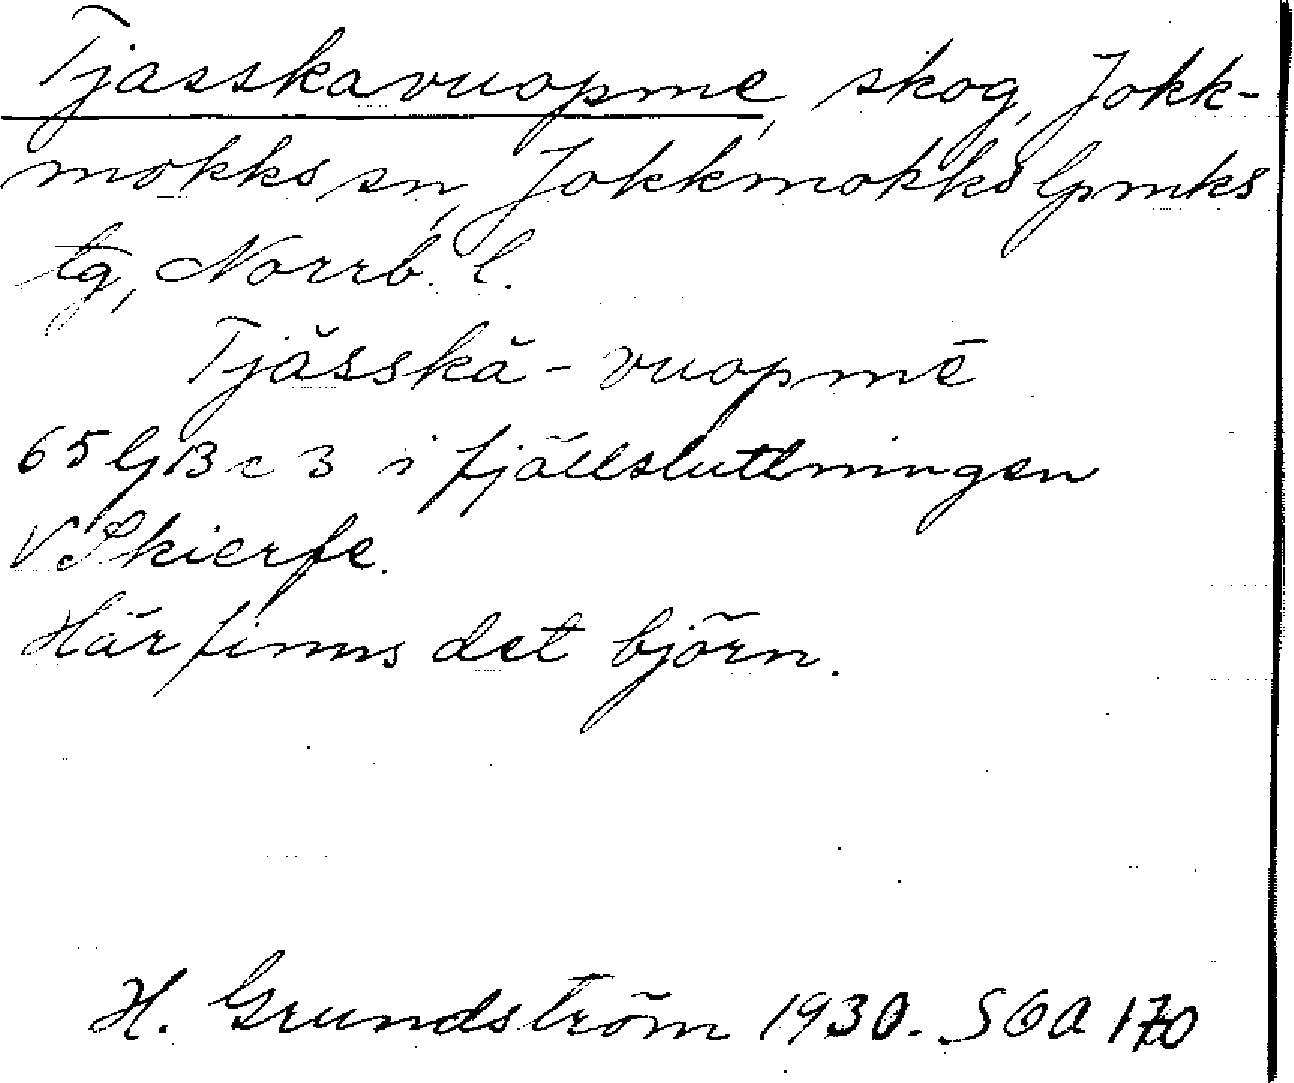 Tjasskavuopme, skog, Jokk-
mokks sn, Jokkmokks lpmks
tg, Norrb. l.
Tjăsskă-vuopmē
65 G B c 3 i fjällsluttningen
V Skierfe.
Här finns det björn.
H. Grundström 1930. SOA 170